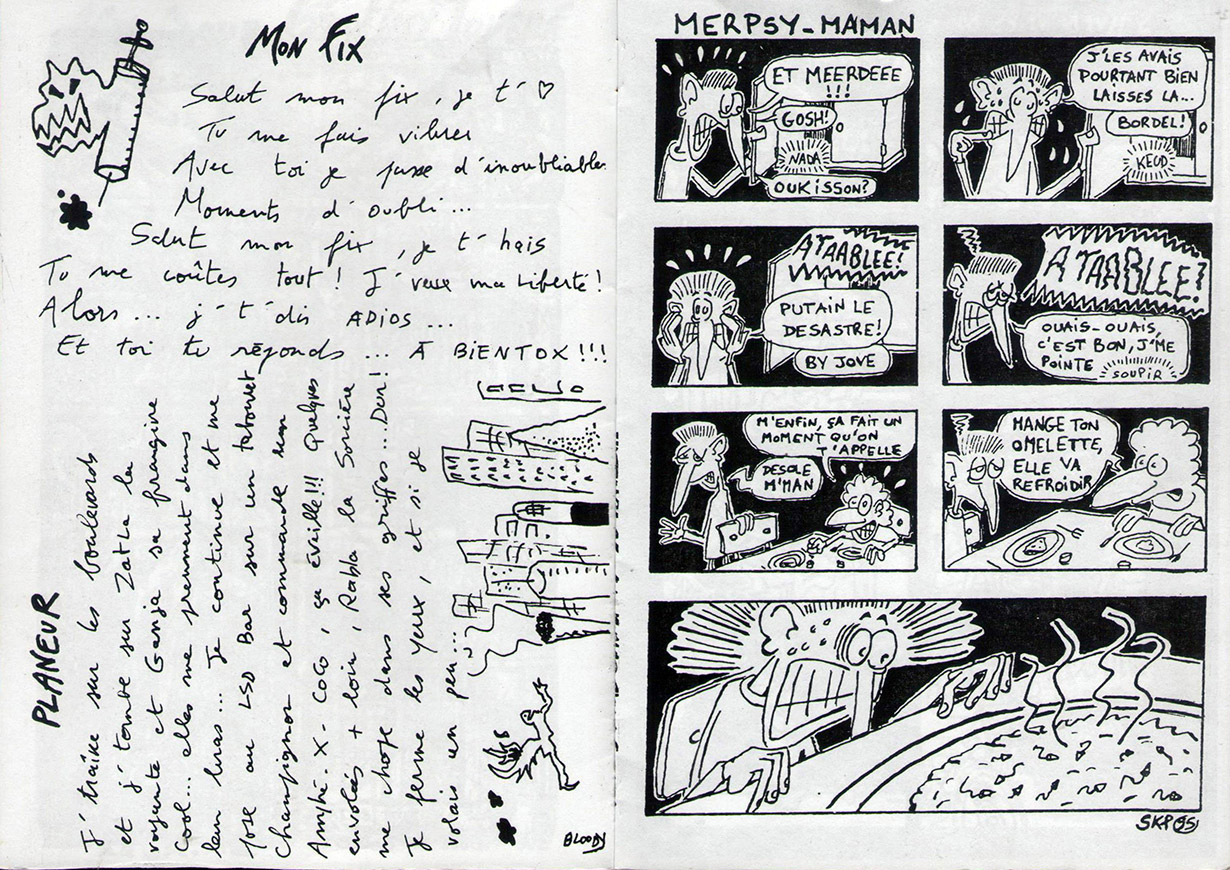 MON FIX
Salut mon fix, je t' ♡
Tu me fais vibrer
Avec toi je passe d'inoubliables
Moments d'oubli...
Salut mon fix, je t'hais
Tu me coûtes tout! J'veux ma Liberté!
Alors... j't'dis ADIOS...
Et toi tu réponds... À BIENTOX!!!
PLANEUR
J'traîne sur les boulevards
et j'tombe sur Zatla la
voyante et Ganja sa frangine
Cool... elles me prennent dans
leur bras... Je continue et me
pose au LSD Bar sur un tabouret
Champignon et commande un
Amphé-X-Coco, ça éveille!!! Quelques
envolées + loin, Rabla la Sorcière
me chope dans ses griffes... Dur!
Je ferme les yeux, et si je
volais un peu...
BLOODY
MERPSY-MAMAN
ET MEERDEEE
!!!
GOSH!
NADA
OUKISSON?
J'LES AVAIS
POURTANT BIEN
LAISSES LA...
BORDEL!
KEUD
A TAABLEE!
PUTAIN LE
DESASTRE!
BY JOVE
A TAABLEE!
OUAIS-OUAIS,
C'EST BON, J'ME
POINTE
SOUPIR
M'ENFIN, ÇA FAIT UN
MOMENT QU'ON
T'APPELLE
DESOLE
M'MAN
MANGE TON
OMELETTE,
ELLE VA
REFROIDIR
SKP 95